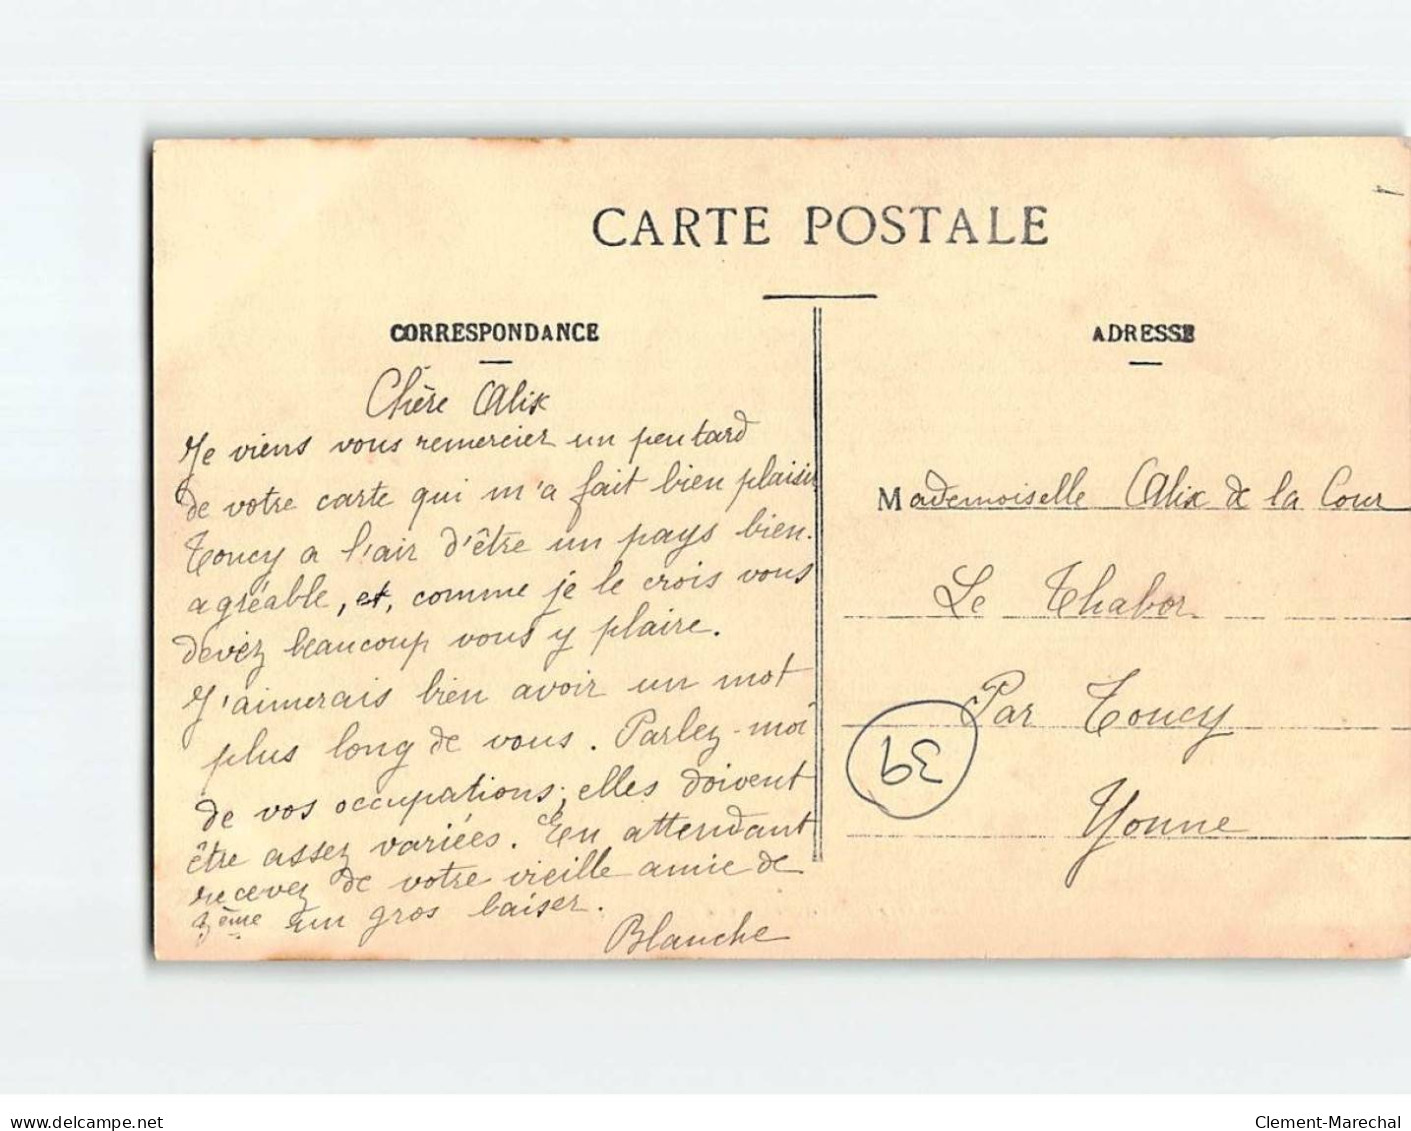 CARTE POSTALE
CORRESPONDANCE
Chère Alix
Je viens vous remercier un peu tard
de votre carte qui m'a fait bien plaisir
Toucy a l'air d'être un pays bien
agréable, et, comme je le crois vous
devez beaucoup vous y plaire.
J'aimerais bien avoir un mot
plus long de vous. Parlez-moi
de vos occupations; elles doivent
être assez variées. En attendant
recevez de votre vieille amie de
3ème un gros baiser.
Blanche
ADRESSE
Mademoiselle Alix de la Cour
Le Thabor
Par Toucy
Yonne
39
delcampe.net
Clement-Marechal